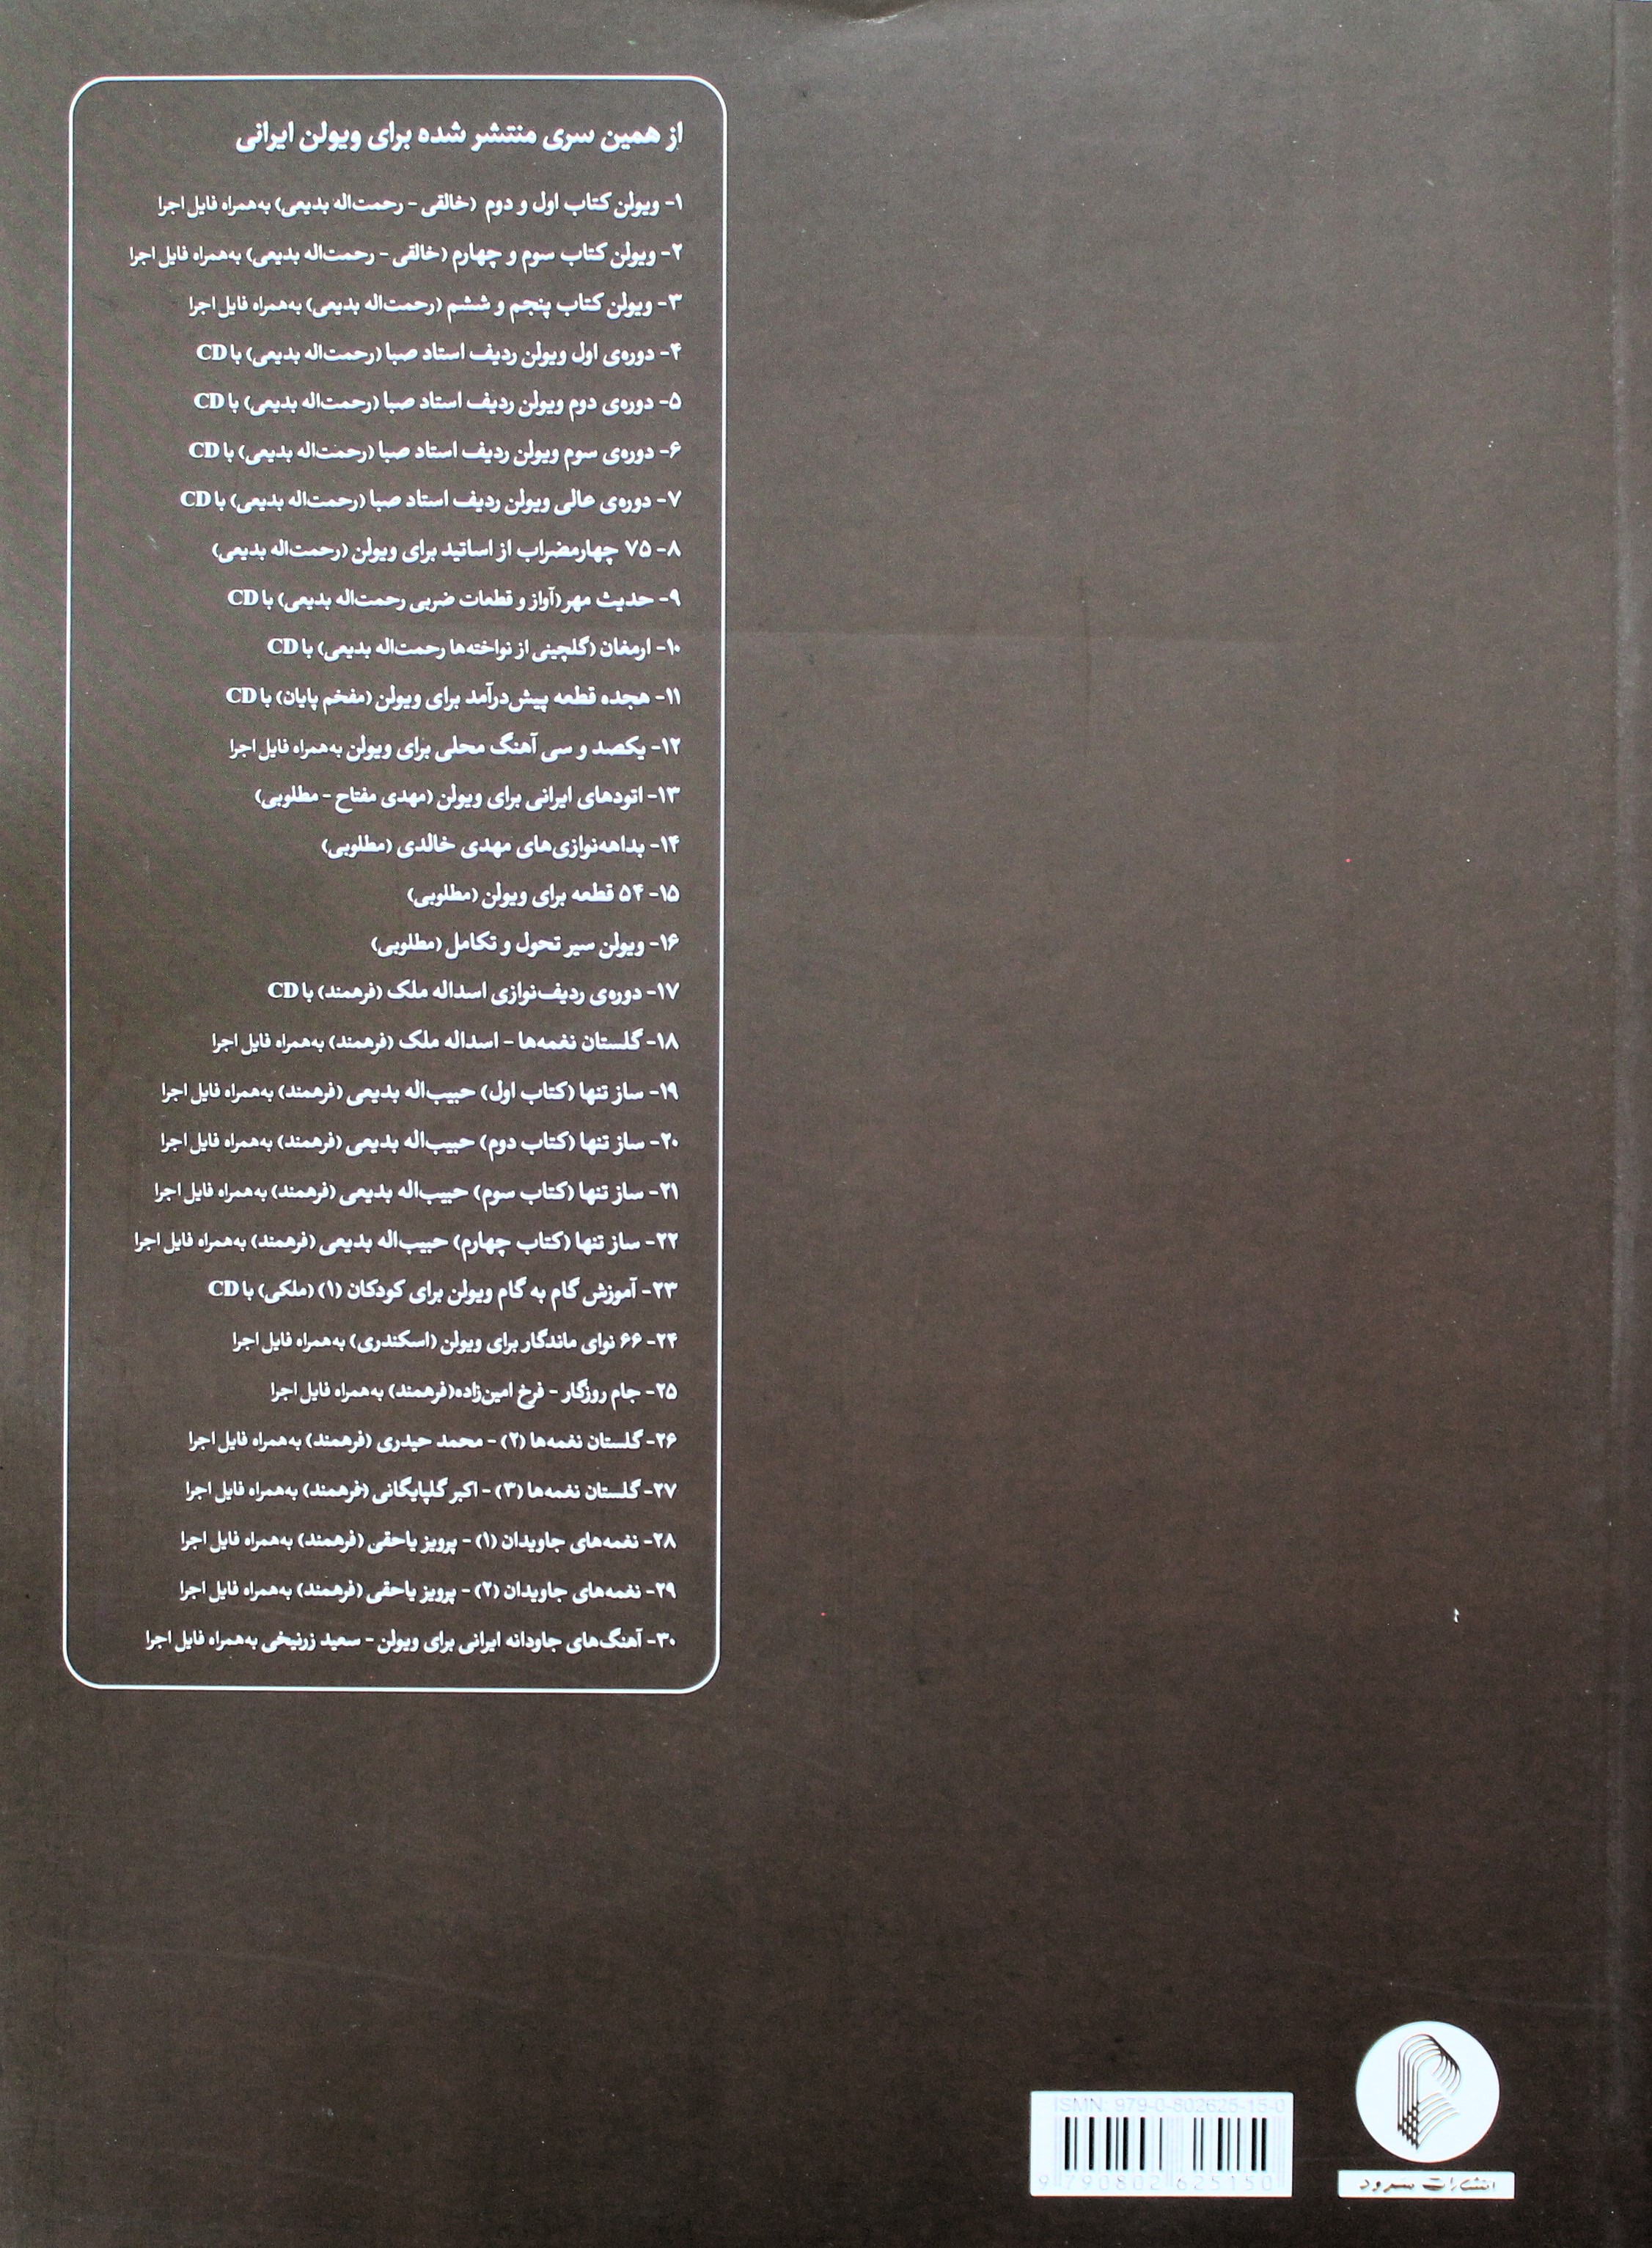 از همین سری منتشر شده برای ویولن ایرانی
۱- ویولن کتاب اول و دوم (خالقی - رحمت‌اله بدیعی) به‌همراه فایل اجرا
۲- ویولن کتاب سوم و چهارم (خالقی - رحمت‌اله بدیعی) به‌همراه فایل اجرا
۳- ویولن کتاب پنجم و ششم (رحمت‌اله بدیعی) به‌همراه فایل اجرا
۴- دوره‌ی اول ویولن ردیف استاد صبا (رحمت‌اله بدیعی) با CD
۵- دوره‌ی دوم ویولن ردیف استاد صبا (رحمت‌اله بدیعی) با CD
۶- دوره‌ی سوم ویولن ردیف استاد صبا (رحمت‌اله بدیعی) با CD
۷- دوره‌ی عالی ویولن ردیف استاد صبا (رحمت‌اله بدیعی) با CD
۸- ۷۵ چهارمضراب از اساتید برای ویولن (رحمت‌اله بدیعی)
۹- حدیث مهر (آواز و قطعات ضربی رحمت‌اله بدیعی) با CD
۱۰- ارمغان (گلچینی از نواخته‌ها رحمت‌اله بدیعی) با CD
۱۱- هجده قطعه پیش‌درآمد برای ویولن (مفخم پایان) با CD
۱۲- یکصد و سی آهنگ محلی برای ویولن به‌همراه فایل اجرا
۱۳- اتودهای ایرانی برای ویولن (مهدی مفتاح - مطلوبی)
۱۴- بداهه‌نوازی‌های مهدی خالدی (مطلوبی)
۱۵- ۵۴ قطعه برای ویولن (مطلوبی)
۱۶- ویولن سیر تحول و تکامل (مطلوبی)
۱۷- دوره‌ی ردیف‌نوازی اسداله ملک (فرهمند) با CD
۱۸- گلستان نغمه‌ها - اسداله ملک (فرهمند) به‌همراه فایل اجرا
۱۹- ساز تنها (کتاب اول) حبیب‌اله بدیعی (فرهمند) به‌همراه فایل اجرا
۲۰- ساز تنها (کتاب دوم) حبیب‌اله بدیعی (فرهمند) به‌همراه فایل اجرا
۲۱- ساز تنها (کتاب سوم) حبیب‌اله بدیعی (فرهمند) به‌همراه فایل اجرا
۲۲- ساز تنها (کتاب چهارم) حبیب‌اله بدیعی (فرهمند) به‌همراه فایل اجرا
۲۳- آموزش گام به گام ویولن برای کودکان (۱) (ملکی) با CD
۲۴- ۶۶ نوای ماندگار برای ویولن (اسکندری) به‌همراه فایل اجرا
۲۵- جام روزگار - فرخ امین‌زاده (فرهمند) به‌همراه فایل اجرا
۲۶- گلستان نغمه‌ها (۲) - محمد حیدری (فرهمند) به‌همراه فایل اجرا
۲۷- گلستان نغمه‌ها (۳) - اکبر گلپایگانی (فرهمند) به‌همراه فایل اجرا
۲۸- نغمه‌های جاویدان (۱) - پرویز یاحقی (فرهمند) به‌همراه فایل اجرا
۲۹- نغمه‌های جاویدان (۲) - پرویز یاحقی (فرهمند) به‌همراه فایل اجرا
۳۰- آهنگ‌های جاودانه ایرانی برای ویولن - سعید زرنیخی به‌همراه فایل اجرا
ISMN: 979-0-802625-15-0
9 790802 625150
انتشارات سرود